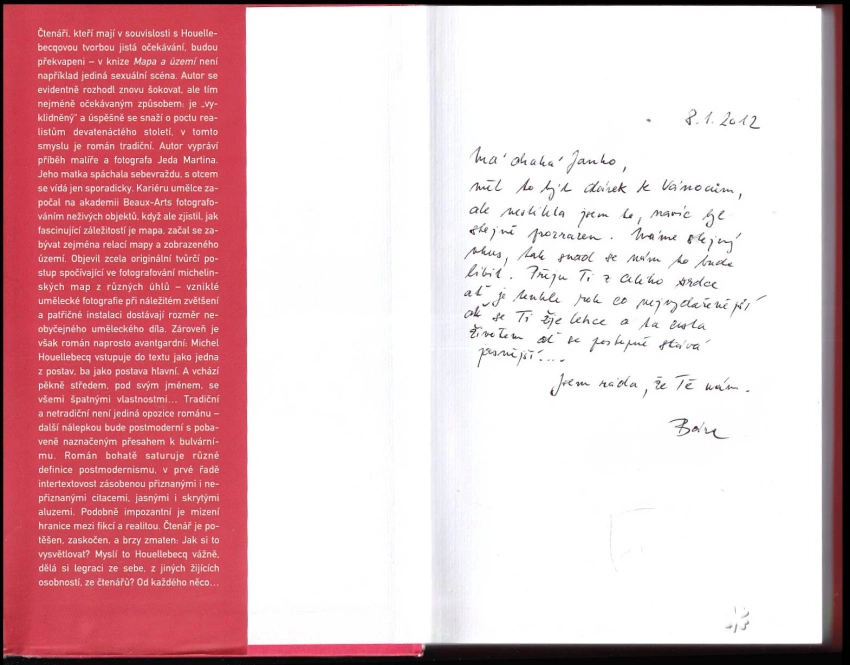 Čtenáři, kteří mají v souvislosti s Houelle-
becqovou tvorbou jistá očekávání, budou
překvapeni – v knize Mapa a území není
například jediná sexuální scéna. Autor se
evidentně rozhodl znovu šokovat, ale tím
nejméně očekávaným způsobem: je „vy-
klidněný“ a úspěšně se snaží o poctu rea-
listům devatenáctého století, v tomto
smyslu je román tradiční. Autor vypráví
příběh malíře a fotografa Jeda Martina.
Jeho matka spáchala sebevraždu, s otcem
se vídá jen sporadicky. Kariéru umělce za-
počal na akademii Beaux-Arts fotografo-
váním neživých objektů, když ale zjistil, jak
fascinující záležitostí je mapa, začal se za-
bývat zejména relací mapy a zobrazeného
území. Objevil zcela originální tvůrčí po-
stup spočívající ve fotografování michelin-
ských map z různých úhlů – vzniklé
umělecké fotografie při náležitém zvětšení
a patřičné instalaci dostávají rozměr ne-
obyčejného uměleckého díla. Zároveň je
však román naprosto avantgardní: Michel
Houellebecq vstupuje do textu jako jedna
z postav, ba jako postava hlavní. A vchází
pěkně středem, pod svým jménem, se
všemi špatnými vlastnostmi... Tradiční
a netradiční není jediná opozice románu –
další nálepkou bude postmoderní s poba-
veně naznačeným přesahem k bulvární-
mu. Román bohatě saturuje různé
definice postmodernismu, v prvé řadě
intertextovost zásobenou přiznanými i ne-
přiznanými citacemi, jasnými i skrytými
aluzemi. Podobně impozantní je mizení
hranice mezi fikcí a realitou. Čtenář je po-
těšen, zaskočen, a brzy zmaten: Jak si to
vysvětlovat? Myslí to Houellebecq vážně,
dělá si legraci ze sebe, z jiných žijících
osobností, ze čtenářů? Od každého něco...
8.1.2012
Má drahá Janko,
měl to být dárek k Vánocům,
ale nestihla jsem to, navíc byl
stejně prozrazen. Máme stejný
vkus, tak snad se nám to bude
líbit. Přeju Ti z celého srdce
ať je tenhle rok co nejvydařenější
ať se Ti žije lehce a ta cesta
životem ať se postupně stává
jasnější....
Jsem ráda, že Tě mám.
Bára